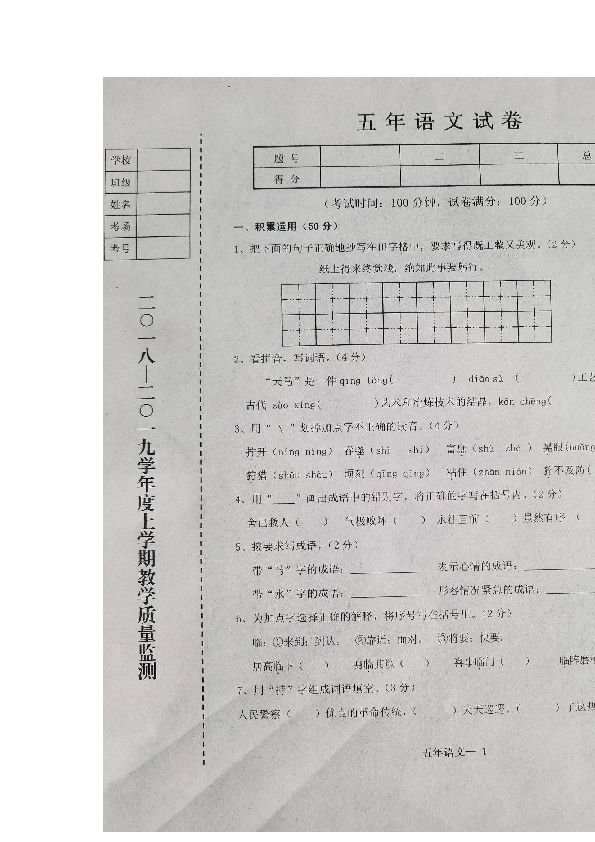 五年语文试卷
题号 二 三 总
得分
(考试时间：100分钟，试卷满分：100分)
学校
班级
姓名
考场
考号
二〇一八—二〇一九学年度上学期教学质量监测
一、积累运用(50分)
1、把下面的句子正确地抄写在田字格中，要求写得既工整又美观。(2分)
纸上得来终觉浅，绝知此事要躬行。
2、看拼音，写词语。(4分)
“天马”是一件qīng tóng( ) diāo sù ( )工艺
古代 zào xíng( )艺术和冶炼技术的结晶，kān chēng(
3、用“\”划掉加点字不正确的读音。(4分)
拧开(níng nǐng) 吞噬(shì shí) 富庶(shù zhè) 晃眼(huǎng
狩猎(shǒu shòu) 顷刻(qīng qǐng) 粘住(zhān nián) 猝不及防(
4、用“____”画出成语中的错别字，将正确的字写在括号内。(2分)
舍己救人( ) 气极败坏( ) 永往直前( )
5、按要求写成语。(2分)
带“马”字的成语：____________ 表示心情的成语：____________
带“水”字的成语：____________ 形容情况紧急的成语：
6、为加点字选择正确的解释，将序号写在括号里。(2分)
临：①来到；到达。 ②靠近；面对。 ③将要；快要。
居高临下( ) 身临其境( ) 喜事临门( )
7、用“持”字组成词语填空。(3分)
人民警察( )优良的革命传统，( )天天巡逻，( )了这
五年语文— 1